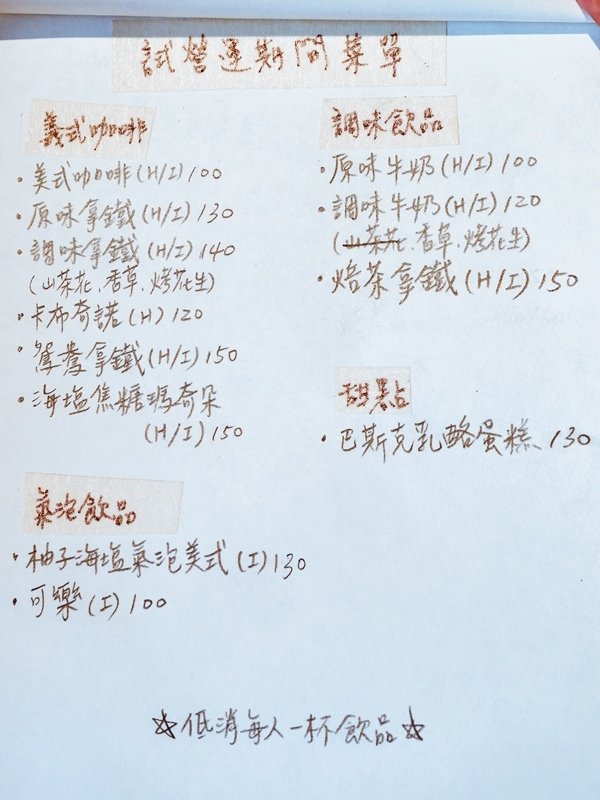 試營運期間菜單
義式咖啡
·美式咖啡(H/I)100
·原味拿鐵(H/I)130
·調味拿鐵(H/I)140
(山茶花、香草、烤花生)
·卡布奇諾(H)120
·鴛鴦拿鐵(H/I)150
·海塩焦糖瑪奇朵
(H/I)150
氣泡飲品
·柚子海塩氣泡美式(I)130
·可樂(I)100
調味飲品
·原味牛奶(H/I)100
·調味牛奶(H/I)120
(山茶花、香草、烤花生)
·焙茶拿鐵(H/I)150
甜點
·巴斯克乳酪蛋糕130
☆低消每人一杯飲品☆